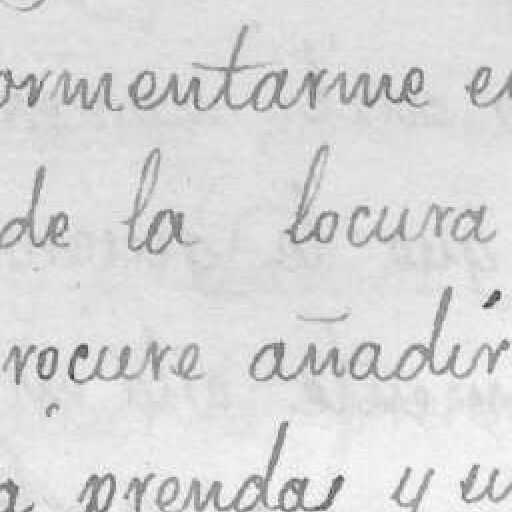 ormentarme en
de la locura
rocure añadir
a prenda y un